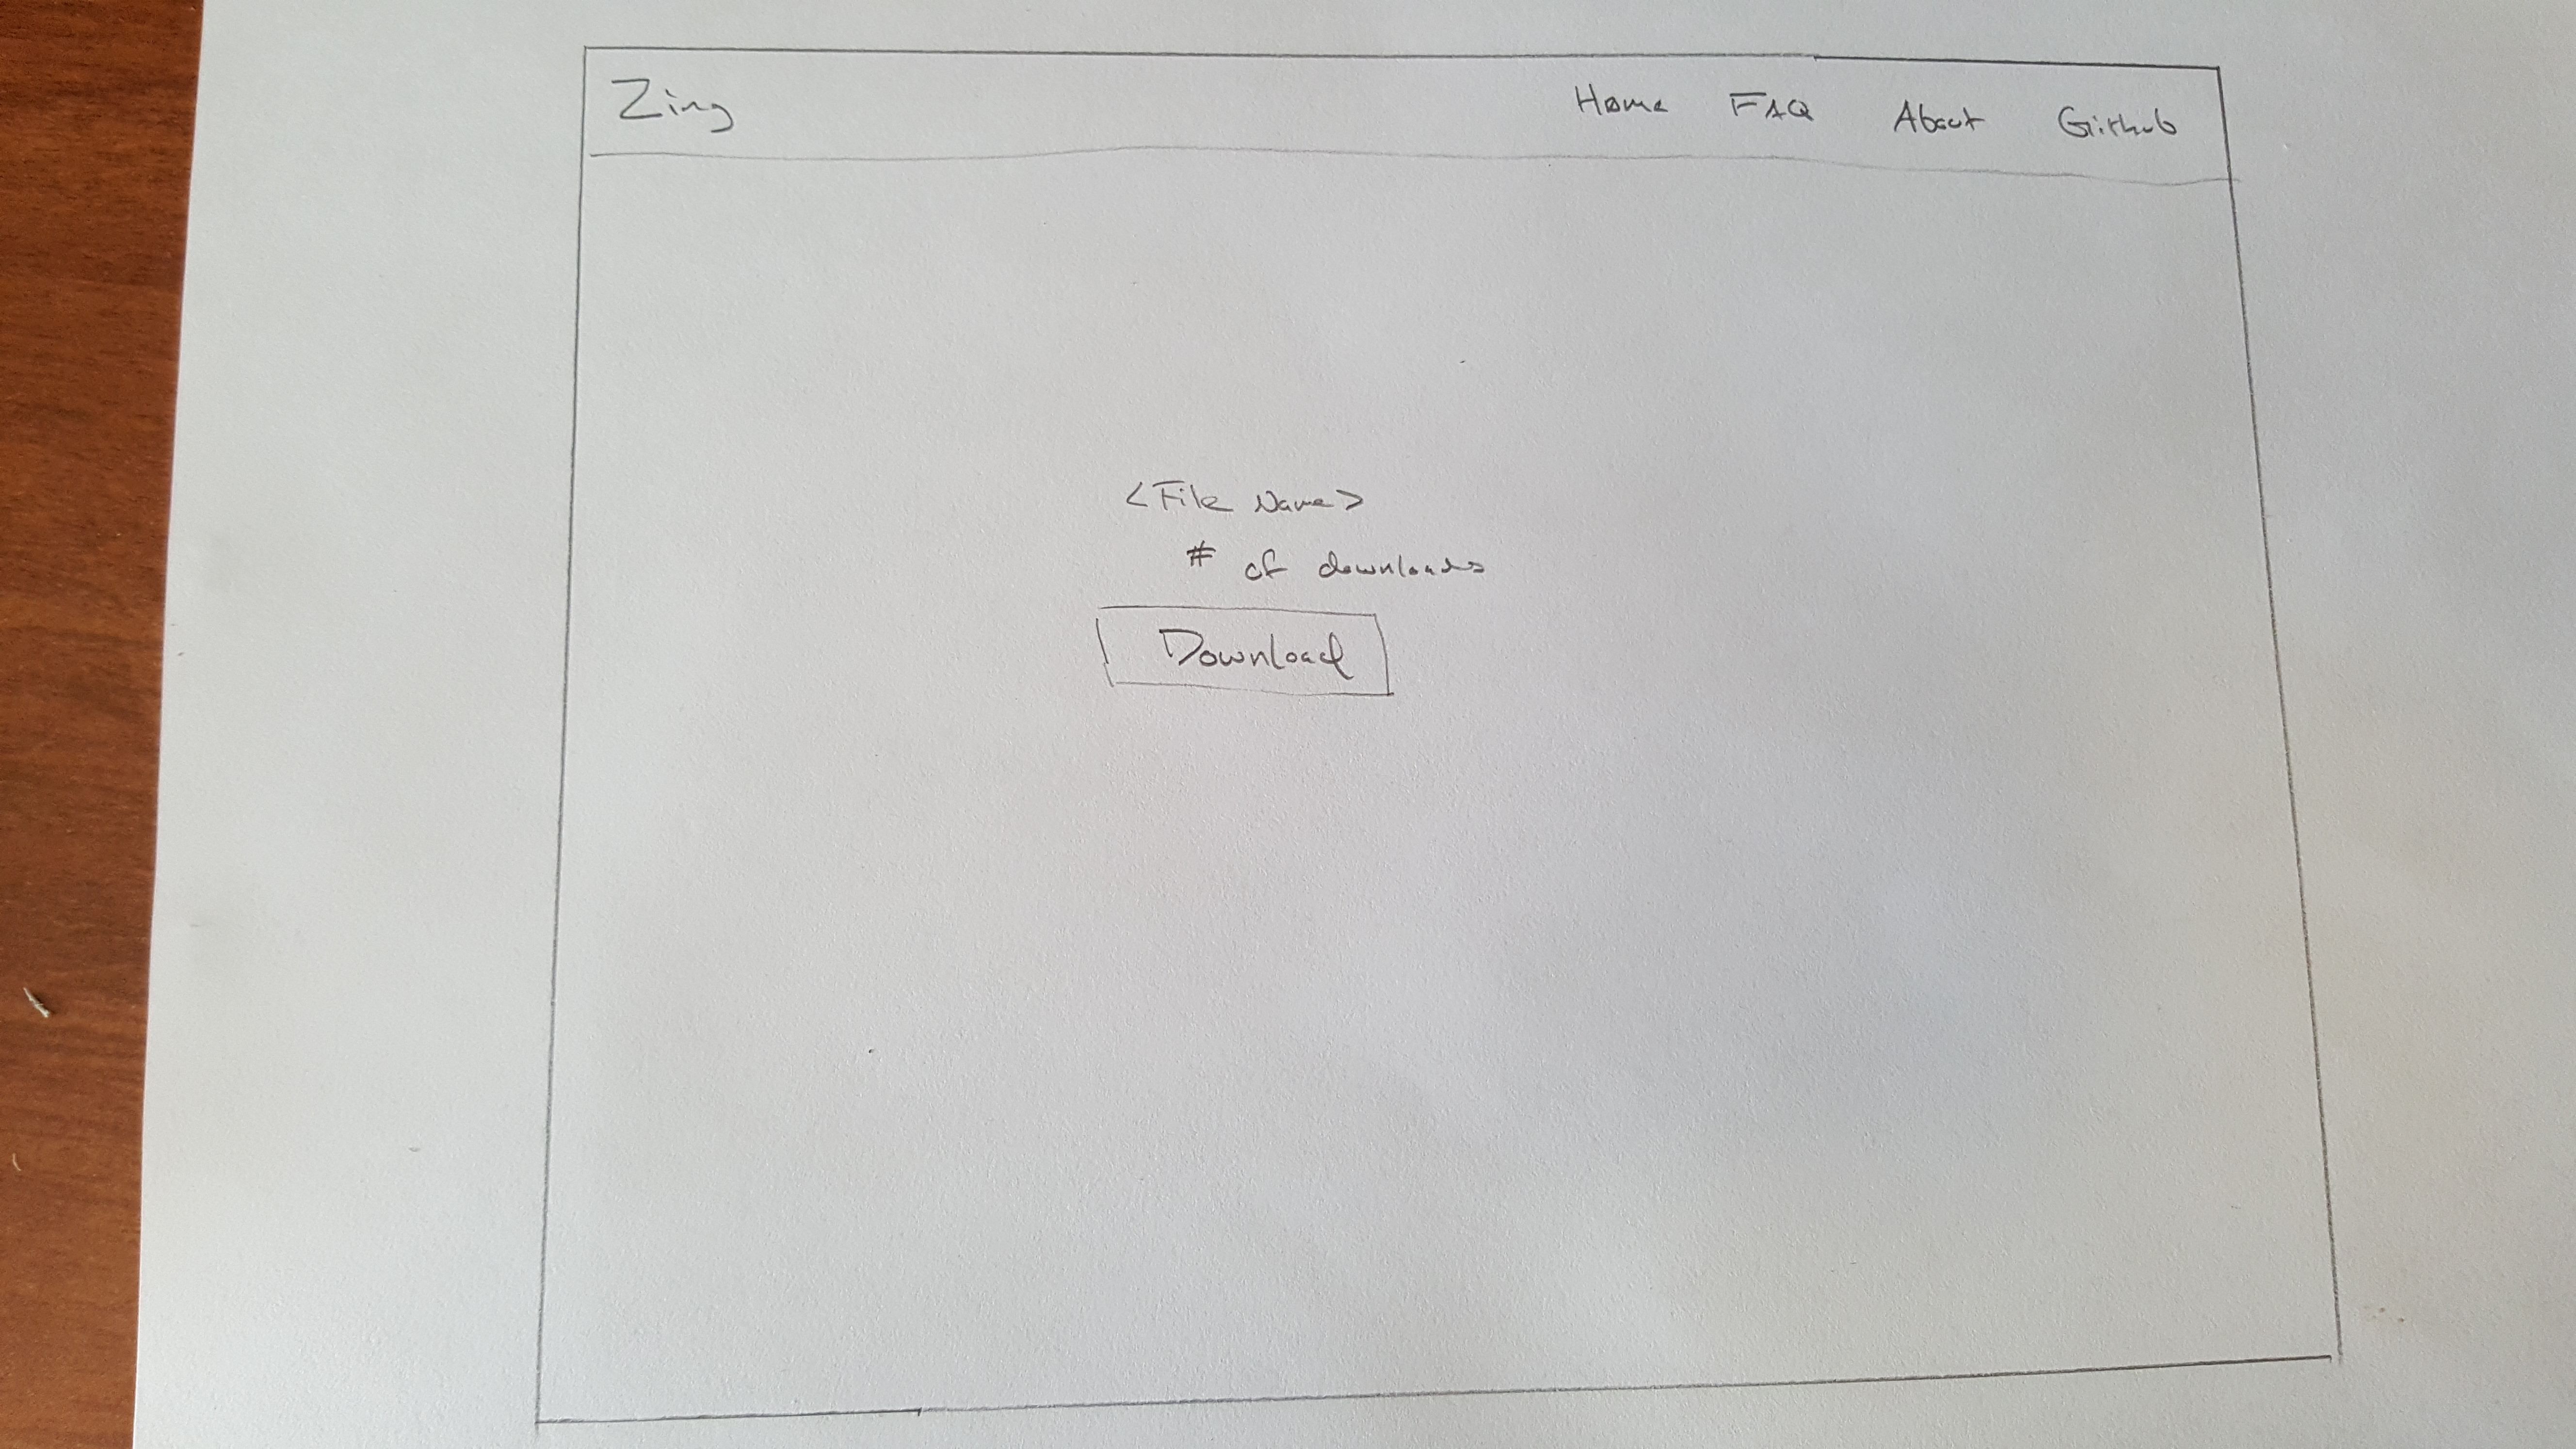 Zing Home FAQ About Github
<File Name>
# of downloads
Download